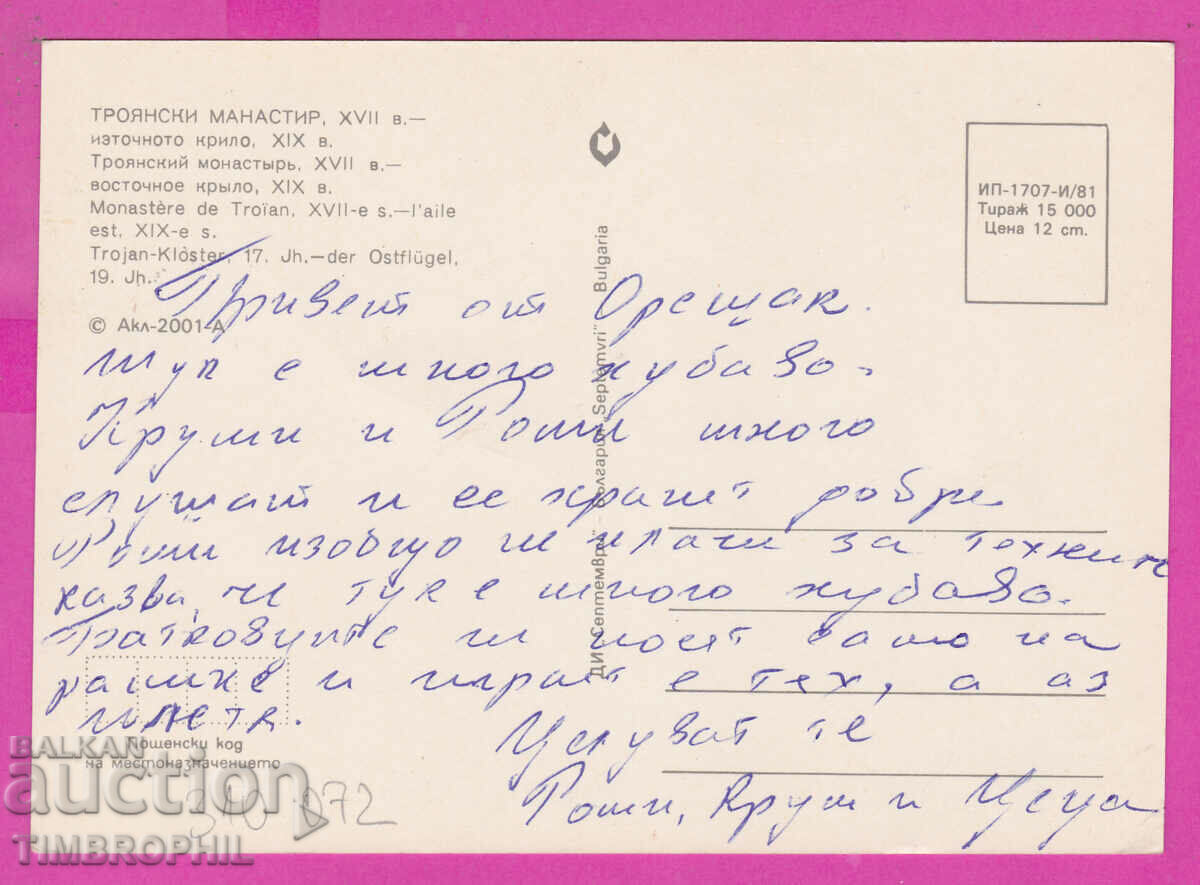 ТРОЯНСКИ МАНАСТИР, XVII в.—
източното крило, XIX в.
Троянский монастырь, XVII в.—
восточное крыло, XIX в.
Monastère de Troïan, XVII-e s.—l'aile
est, XIX-e s.
Trojan-Klöster, 17. Jh.—der Ostflügel,
19. Jh.
© Акл-2001-А
ДИ „Септември" — България „Septemvri" Bulgaria
ИП-1707-И/81
Тираж 15 000
Цена 12 ст.
Привет от Орешак.
Тук е много хубаво.
Круми и Роти много
слушат и се хранят добре
Роти изобщо не плаче за техните
казва, че тук е много хубаво.
Братковците ги носят само на
рамке и играят с тях, а аз
плета.
Целуват те
Роти, Крум и Цеца
Пощенски код
на местоназначението
310 072
BALKAN
auction
TIMBROPHIL